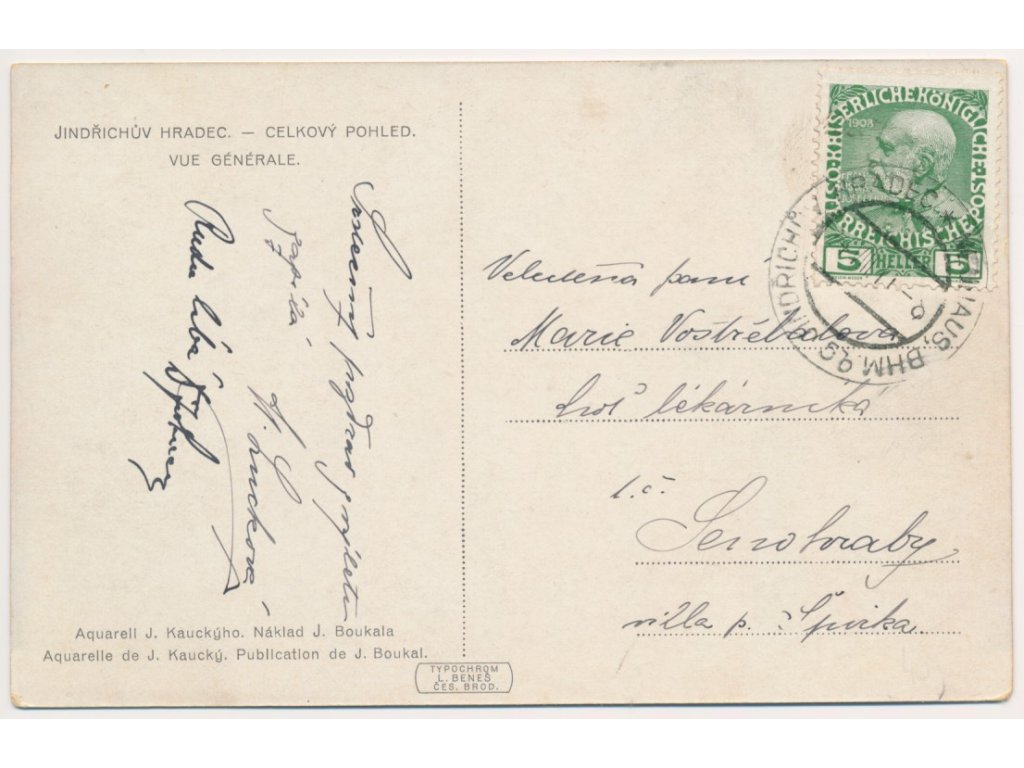 JINDŘICHŮV HRADEC. — CELKOVÝ POHLED.
VUE GÉNÉRALE.
Srdečný pozdrav z výletu
H. Lucková
1908
KAISERLICHE KÖNIGLICHE
ÖSTERREICHISCHE
5 HELLER 5
JINDŘICHŮV HRADEC
NEUHAUS, BHM.
Velectěná paní
Marie Vostřebalova
choť lékárníka
t. č.
Senohraby
villa p. Špirka.
Aquarell J. Kauckýho. Náklad J. Boukala
Aquarelle de J. Kaucký. Publication de J. Boukal.
TYPOCHROM
L. BENEŠ
ČES. BROD.